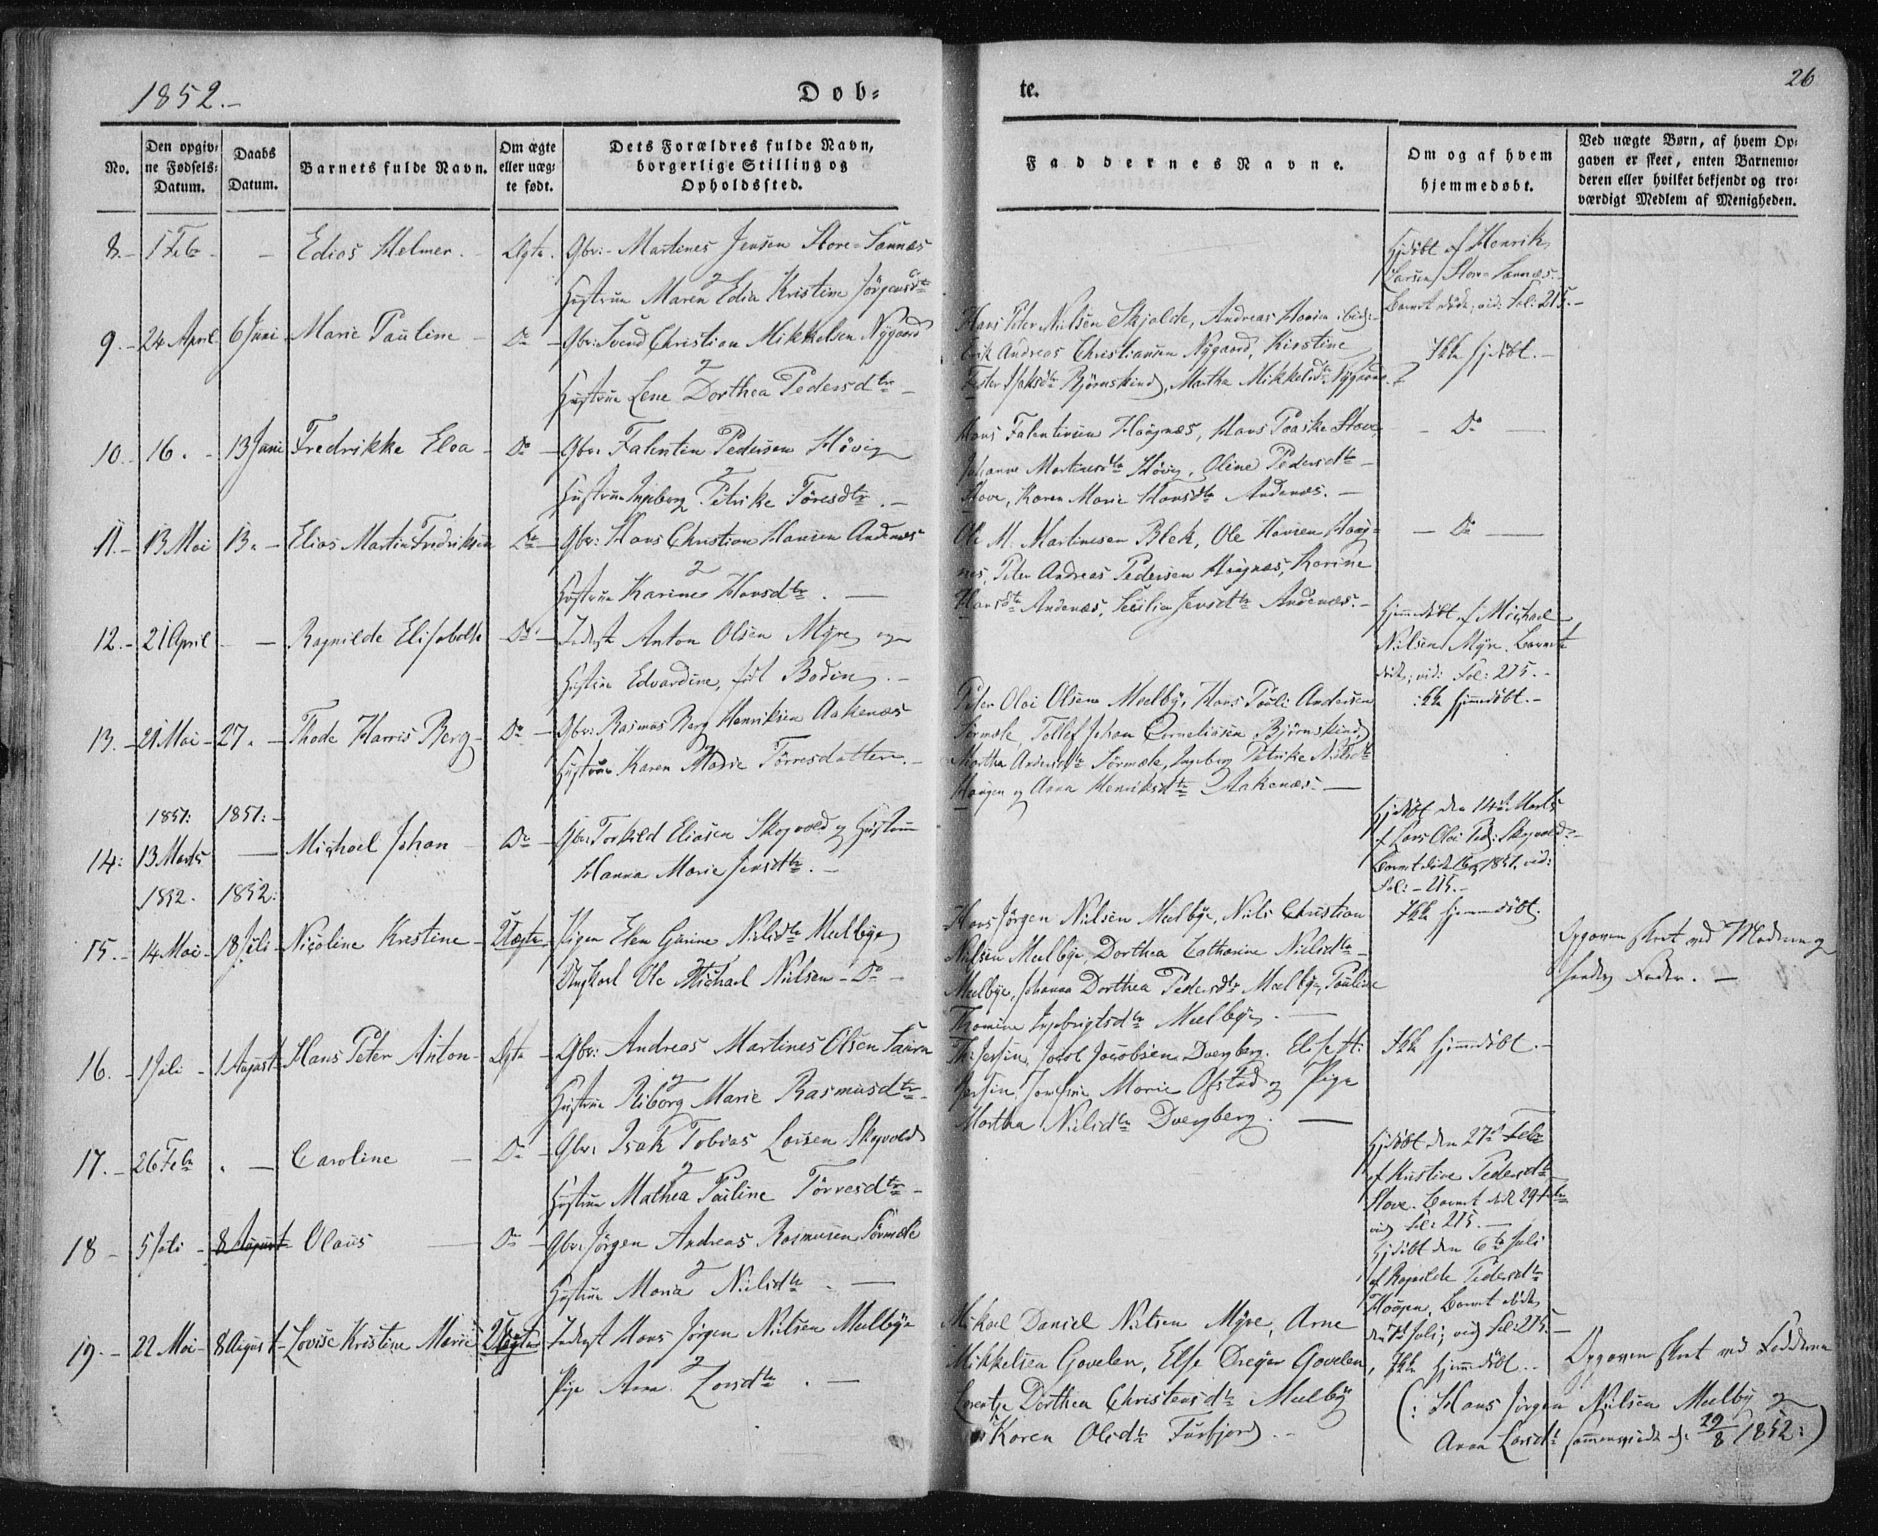 1852.-
Dob-
te.
26
No.
Den opgiv-
ne Fødsels-
Datum.
Daabs
Datum.
Barnets fulde Navn.
Om ægte
eller uæg-
te født.
Dets Forældres fulde Navn,
borgerlige Stilling og
Opholdssted.
Faddernes Navne.
Om og af hvem
hjemmedøbt.
Ved uægte Børn, af hvem Op-
gaven er skeet, enten Barnemo-
deren eller hvilket bekjendt og tro-
værdigt Medlem af Menigheden.
8.- 1 Feb - Edias Helmer. Ægte. Gbr:- Martines Jensen Store-Sannæs
Hustrue Maren Edia Kristine Jörgensdtr
Hjdöbt af Henrik
Larsen Store Sannæs.
Barnet döde, vid: Fol: 215.-
9.- 24 April 6 Juni Marie Pauline - Do - Gbr: Svend Christian Mikkelsen Nygaard
Hustrue Lene Dorthea Pedersdtr -
Hans Peter Nielsen Skjolde, Andreas Hansen
Erik Andreas Christiansen Nygaard, Kirstine
Bjørnskind, Martha Mikkelsdtr Nygaard.
Ikke hjdöbt.-
10.- 16. - 13 Juni Fredrikke Elea - Do - Gbr: Falentin Pedersen Hövig
Hustrue Ingeborg Petrike Töresdtr. -
Hans Falentinsen Haagnæs, Hans Paaske Stave,
Johanna Martinesdtr Hövig, Oline Pedersdtr -
Stave, Karen Marie Hansdtr Andenæs. -
- Do -
11.- 13 Mai 13. - Elias Martin Fredriksen Do - Gbr: Hans Christian Hansen Andenæs
Hustrue Karine Hansdtr. -
Ole M. Martinesen Blek, Ole Hansen Haag-
nes, Peter Andreas Pedersen Haagnæs, Karine
Hansdtr Andenæs, Secilia Jensdtr Andenæs.-
- Do -
12.- 21 April - Ragnilde Elisabeth Do - Inderst Anton Olsen Myre og
Hustrue Edvardine, föd Boding. -
Hjemmdöbt af Michael
Nilsen Myre. Barnet
död, vid: Fol: 215. -
13.- 21 Mai - 27. - Thode Harris Berg - Do - Gbr: Rasmus Berg Henriksen Aakenæs
Hustrue Karen Marie Törresdatter. -
Peter Oloi Olsen Mælby, Hans Pauli Andersen
Sörmæle, Tollef Johan Corneliusen Bjørnskind,
Martha Andersdtr Sörmæle, Ingeborg Petrike Nilsdtr
Haugen og Anna Henriksdtr Aakenæs. -
ikke hjemmdöbt.-
1851: 1851:-
14: 13 Marts - Michael Johan - Do - Gbr: Torkild Eliasen Skogvold og Hustrue
Hanna Marie Jensdtr. -
Hjdöbt den 14de Marts
af Lars Oloi Ped: Skogvold.-
Barnet döde 1851, vid:
Fol:- 215.-
1852. 1852:
15.- 14 Mai - 18 Juli - Nicoline Krestine - Uægte - Pigen Elen Gurine Nielsdtr Mælbye
Ungkarl Ole Michael Nielsen - Do -
Hans Jörgen Nielsen Mælbye, Niels Christian
Nielsen Mælbye, Dorthea Cathrine Nielsdtr -
Mælbye, Johanna Dorthea Pedersdtr Mælbye, Pauline
Thomine Ingebrigtsdtr Mælbye. -
Ikke hjemmdöbt.
Opgaven skeet ved Moderen og
Fader. -
16. - 1 Juli - 1 August Hans Peter Anton - Ægte - Gbr: Andreas Martines Olsen Saura
Hustrue Riborg Marie Rasmusdtr -
Jacob Jacobsen Dverberg. Elisett:
Marie Ofstad og Pige
Martha Nielsdtr Dverberg. -
Ikke hjemmdöbt. -
17. - 26 Feb . - Caroline - Do - Gbr: Isak Tobias Larsen Skogvold
Hustrue Mathea Pauline Törresdtr -
Hjdöbt den 27de Feb
af Kristine Pedersdtr
Stave. Barnet död 29de
vid Fol: 215. -
18 - 5 Juli - 8 August - Olaus - Do - Gbr: Jörgen Andreas Rasmusen Sörmæle
Hustrue Maria Nielsdtr. -
Hjdöbt den 6te Juli
af Ragnilde Pedersdtr
Haagen, Barnet döde
den 7de Juli; vid Fol: 215. -
19. - 22 Mai - 8 August - Lovise Kristine Marie Uægte - Inderst Hans Jörgen Nielsen Mælbye
Pige Anna Larsdtr. -
Mikael Daniel Nielsen Myre, Arne
Mikkelsen Gavelen, Else Dreyer Gavelen,
Lorentze Dorthea Christensdtr Mælby
og Karen Olsdtr Fiskfjord. -
Ikke hjemmdöbt. -
Opgaven skeet ved Fadderne
(: Hans Jörgen Nielsen Mælby og
Anna Larsdtr sammenviede d: 29/8 1852:)